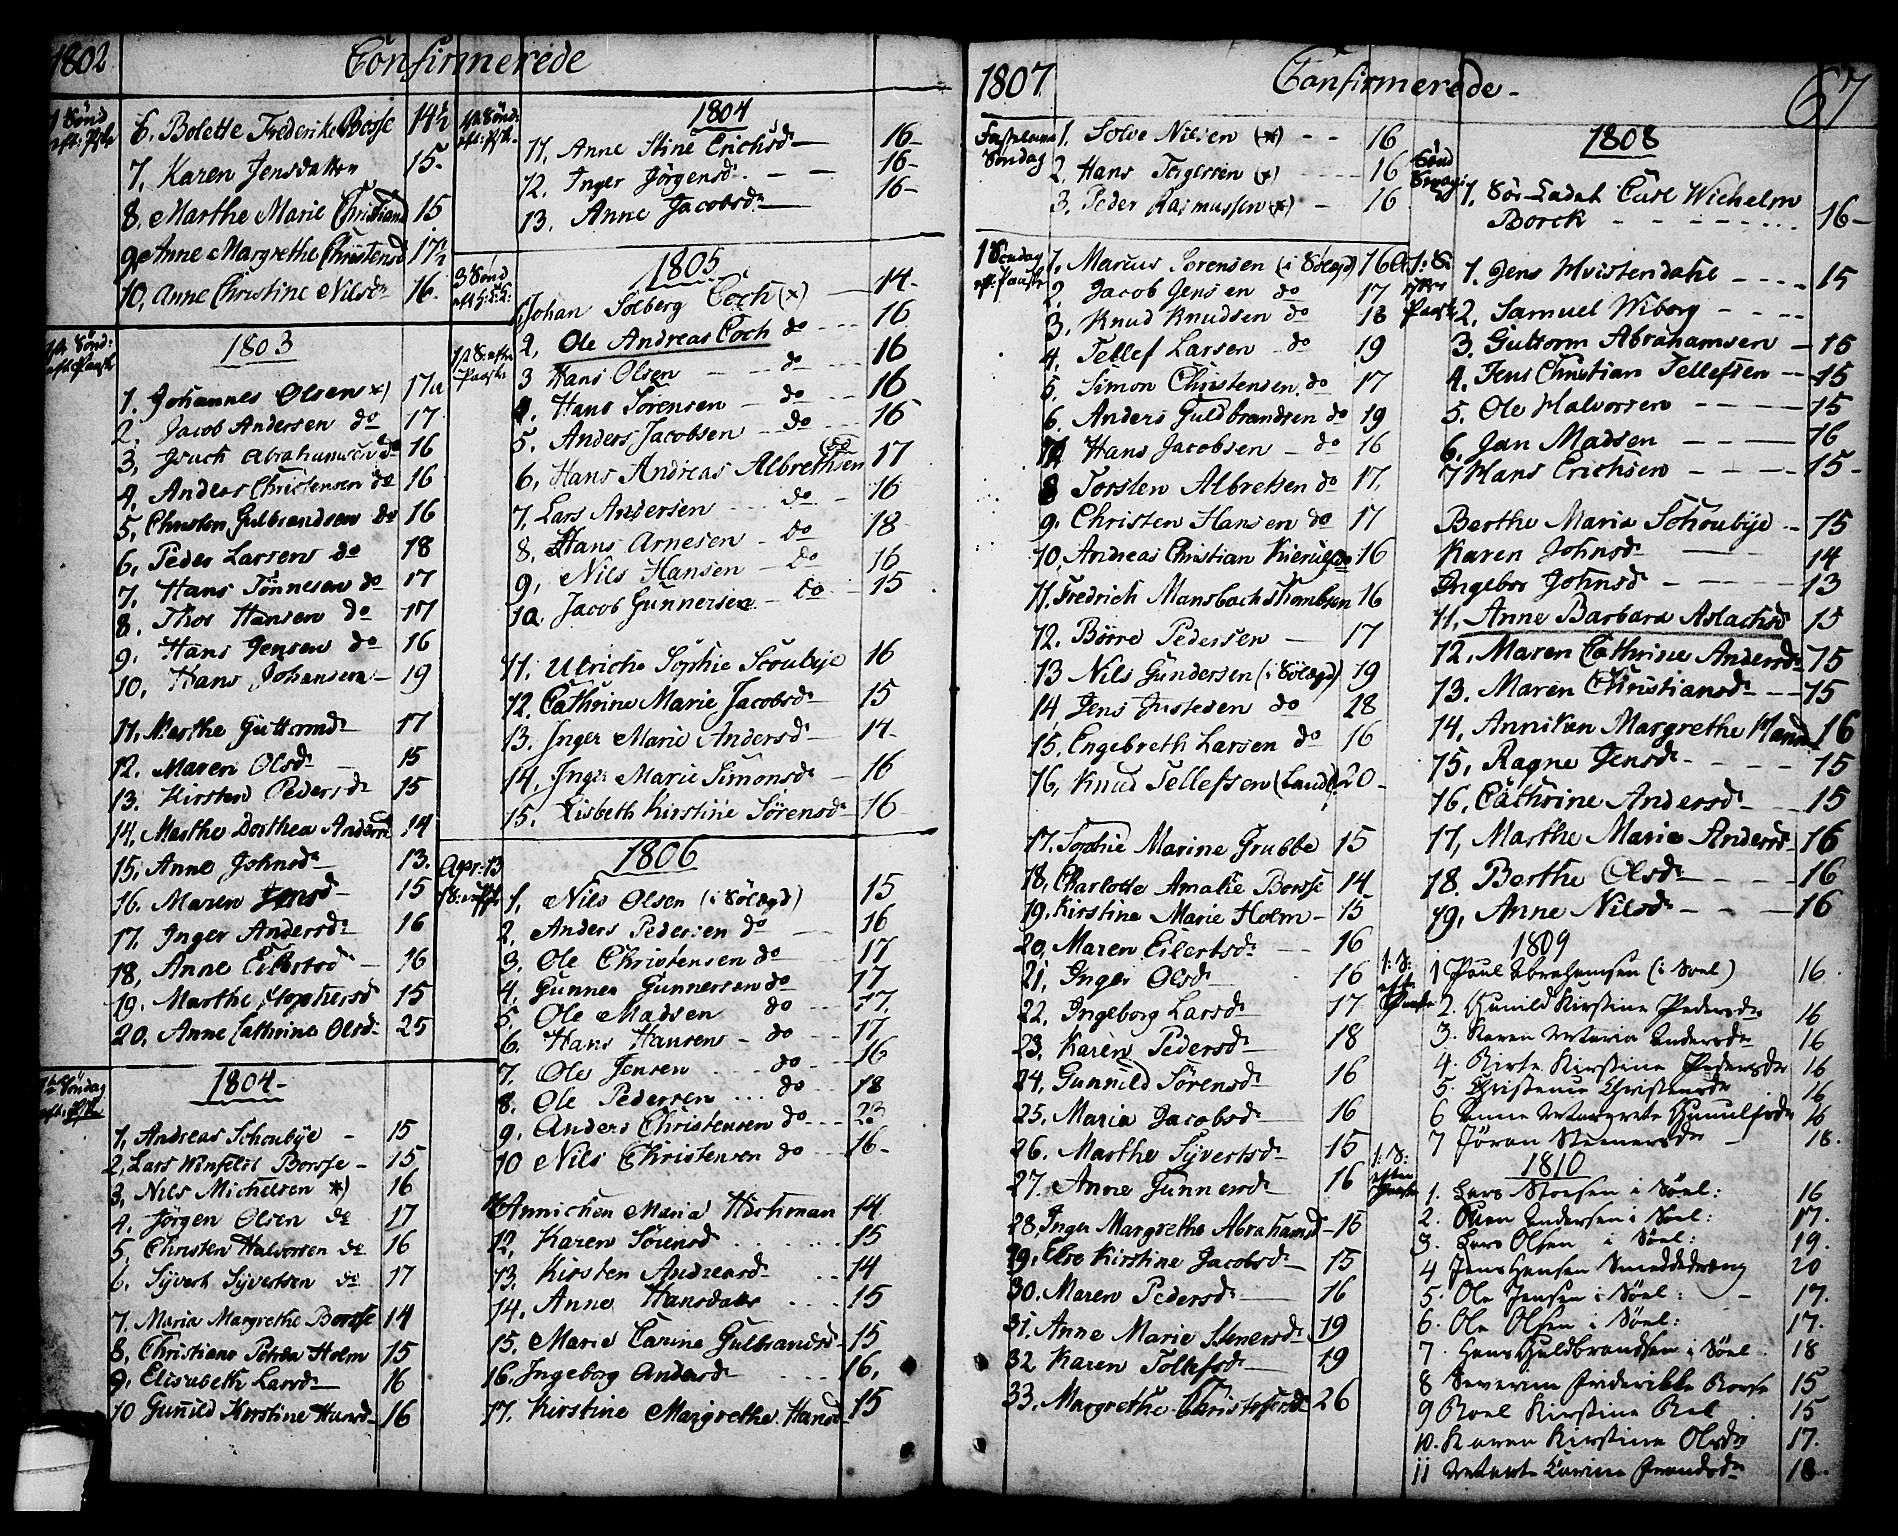 1802 Confirmerede
1 Sønd
eft: Pssk
6. Bolette Frederike Borse 14½
7. Karen Jensdatter 15.
8. Marthe Marie Christiand 15
9. Anne Margrethe Christensd 17½
10. Anne Christine Nilsdr 16.
1803
1ste Sønd:
eft: Paaske
1. Johannes Olsen *) 17
2. Jacob Andersen do 17
3. Isach Abrahamsen do 16
4. Anders Christensen do 16
5. Christen Gulbrandsen do 16
6. Peder Larsen do 18
7. Hans Tønnesen do 17
8. Thor Hansen do 17
9. Hans Jensen do 16
10. Hans Johansen 19
11. Marthe Guttormdr 17
12. Maren Olsdr 15
13. Kirsten Pedersdr 15
14. Marthe Dorthea Andersd 14
15. Anne Johnsdr 13.
16. Maren Jensd 15
17. Inger Andersdr 16
18. Anne Eilertsdr 16
19. Marthe 15
20. Anne Cathrine Olsdr 25
1804
Søndag
eft:
1. Andreas Schoubye 15
2. Lars Winfeldt Borse 15
3. Nils Michelsen *) 16
4. Jørgen Olsen do 17
5. Christen Halvorsen do 16
6. Syvert Syvertsen do 17
7. Maria Margrethe Borse 14
8. Christiane Petrea Holm 15
9. Elisabeth Larsdr 16
10 Gunild Kirstine Hansd 16
1ste Sønd:
eft: Pssk.
1804
11. Anne Stine Erichsdr 16
12. Inger Jørgensdr 16
13. Anne Jacobsdr 16
1805
3 Sønd
1. Johan Solberg Coch (x) 14
2. Ole Andreas Coch do 16
1ste S: efter
Paaske
3 Hans Olsen do 16
4. Hans Sørensen do 16
5. Anders Jacobsen do 16
6. Hans Andreas Albrethsen do 17
7. Lars Andersen do 16
8. Hans Arnesen do 18
9. Nils Hansen do 16
10. Jacob Gunnersen do 15
11. Ulriche Sophie Scoubye 16
12. Cathrine Marie Jacobsdr 15
13. Inger Marie Andersdr 14
14. Inger Marie Simonsdr 16
15. Lisbeth Kirstine Sørensdr 16
1806
Apr: 13
1. Nils Olsen (i Sølægd) 15
2. Anders Pedersen do 16
3. Ole Christensen do 17
4. Gunner Gunnersen do 17
5. Ole Madsen do 17.
6. Hans Hansen do 17
7. Ole Jensen do 16
8. Ole Pedersen do 18
9. Anders Christensen do 23
10 Nils Christensen do 16
11. Annichen Maria Hichman 14
12. Karen Sørensd 15
13. Kirsten Andreasdr 14
14. Anne Hansdatr 15
15. Marie Carine Gulbrandsd 15
16. Ingeborg Andersdr 16.
17. Kirstine Margrethe Hansd 15
1807 Confirmerede 67
Fastelavns
Søndag
1. Solve Nilsen (x) 16
2. Hans Torgersen (x) 16
3. Peder Rasmussen (x) 16
1 Søndag
eft: Paaske
1. Marcus Sørensen (i Sølægd) 16
2. Jacob Jensen do 17
3. Knud Knudsen do 18
4. Tellef Larsen do 19
5. Simon Christensen do 17
6. Anders Guldbrandsen do 19
7. Hans Jacobsen do 16
8 Torsten Albretsen do 17.
9. Christen Hansen do 17
10. Andreas Christian Kierulf do 16
11. Fredrich Mansbach Thomsen 16
12. Børre Pedersen 17
13 Nils Gundersen (i Sølægd) 19
14. Jens Justesen do 28
15. Engebreth Larsen do 16
16. Knud Tellefsen (Land) 20
17. Sophie Marine Grubbe 15
18. Charlotte Amalie Borse 14
19. Kirstine Marie Holm 15
20. Maren Eilertsdr 16
21. Inger Olsdr 16
22. Ingeborg Larsdr 17
23. Karen Pedersdr 18
24. Gunnild Sørensdr 16
25. Maria Jacobsdr 16
26. Marthe Syvertsdr 15
27. Anne Gunnersdr 16
28. Inger Margrethe Abrahamsd 15
29. Else Kirstine Jacobsdr 15
30. Maren Pedersdr 16
31. Anne Marie Stenersdr 19
32. Karen Tollefsdr 19
33. Margrethe Christophersd 26
1808
Sønd
1. Sør-Cadet Carl Wichelm
Borck 16
1: S:
efter
Paaske
1. Jens Hvistendahl 15
2. Samuel Wiborg
3. Guttorm Abrahamsen 15
4. Jens Christian Tellefsen 15
5. Ole Halvorsen 15
6. Jan Madsen 16
7 Hans Erichsen 15
Berthe Maria Schoubye 15
Karen Johnsd 14
Ingebor Johnsd 13
11. Anne Barbara Aslachsd 15
12. Maren Cathrine Andersdr 15
13. Maren Christiansdr 15
14. Anniken Margrethe Hansd 16
15. Ragne Jensdr 15
16. Cathrine Andersdr 15
17. Marthe Maria Andersdr 16
18. Berthe Olsdr 16
19. Anne Nilsdr 16
1809
1: S:
efter
Paaske
1 Poul Abrahamsen (i Søel) 16.
2. Gunild Kirstine Pedersdr 16
3. Karen Maria Andersdr 16
4. Birte Kirstine Pedersdr 16
5. Christence Christensdr 16
6 Anne Margrete Gunulfsdr 16
7 Jøran Steenersdr 18.
1810
1: S:
efter
Paaske
1. Lars Olsen i Søel: 16
2. Sven Andersen i Søel: 17.
3. Lars Olsen i Søel: 19.
4 Jens Hansen Smeddedreng 20
5. Ole Jensen i Søel: 17.
6. Ole Olsen i Søel: 17.
7. Hans Guldbrandsen i Søel. 18
8 Severine Friderikke Borse 15
9 Boel Kirstine 15
10. Karen Kirstine Olsdr 17.
11 Carine 18.